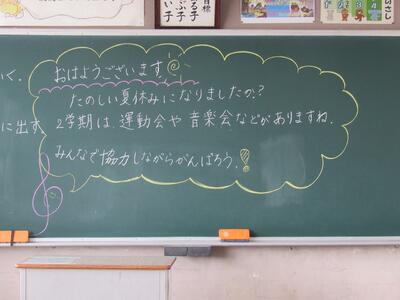 目標
る子
ぶ子
い子
のさし
いく.
おはようございます.
たのしい夏休みになりましたか?
に出す
2学期は、運動会や音楽会などがありますね.
みんなで協力しながらがんばろう!